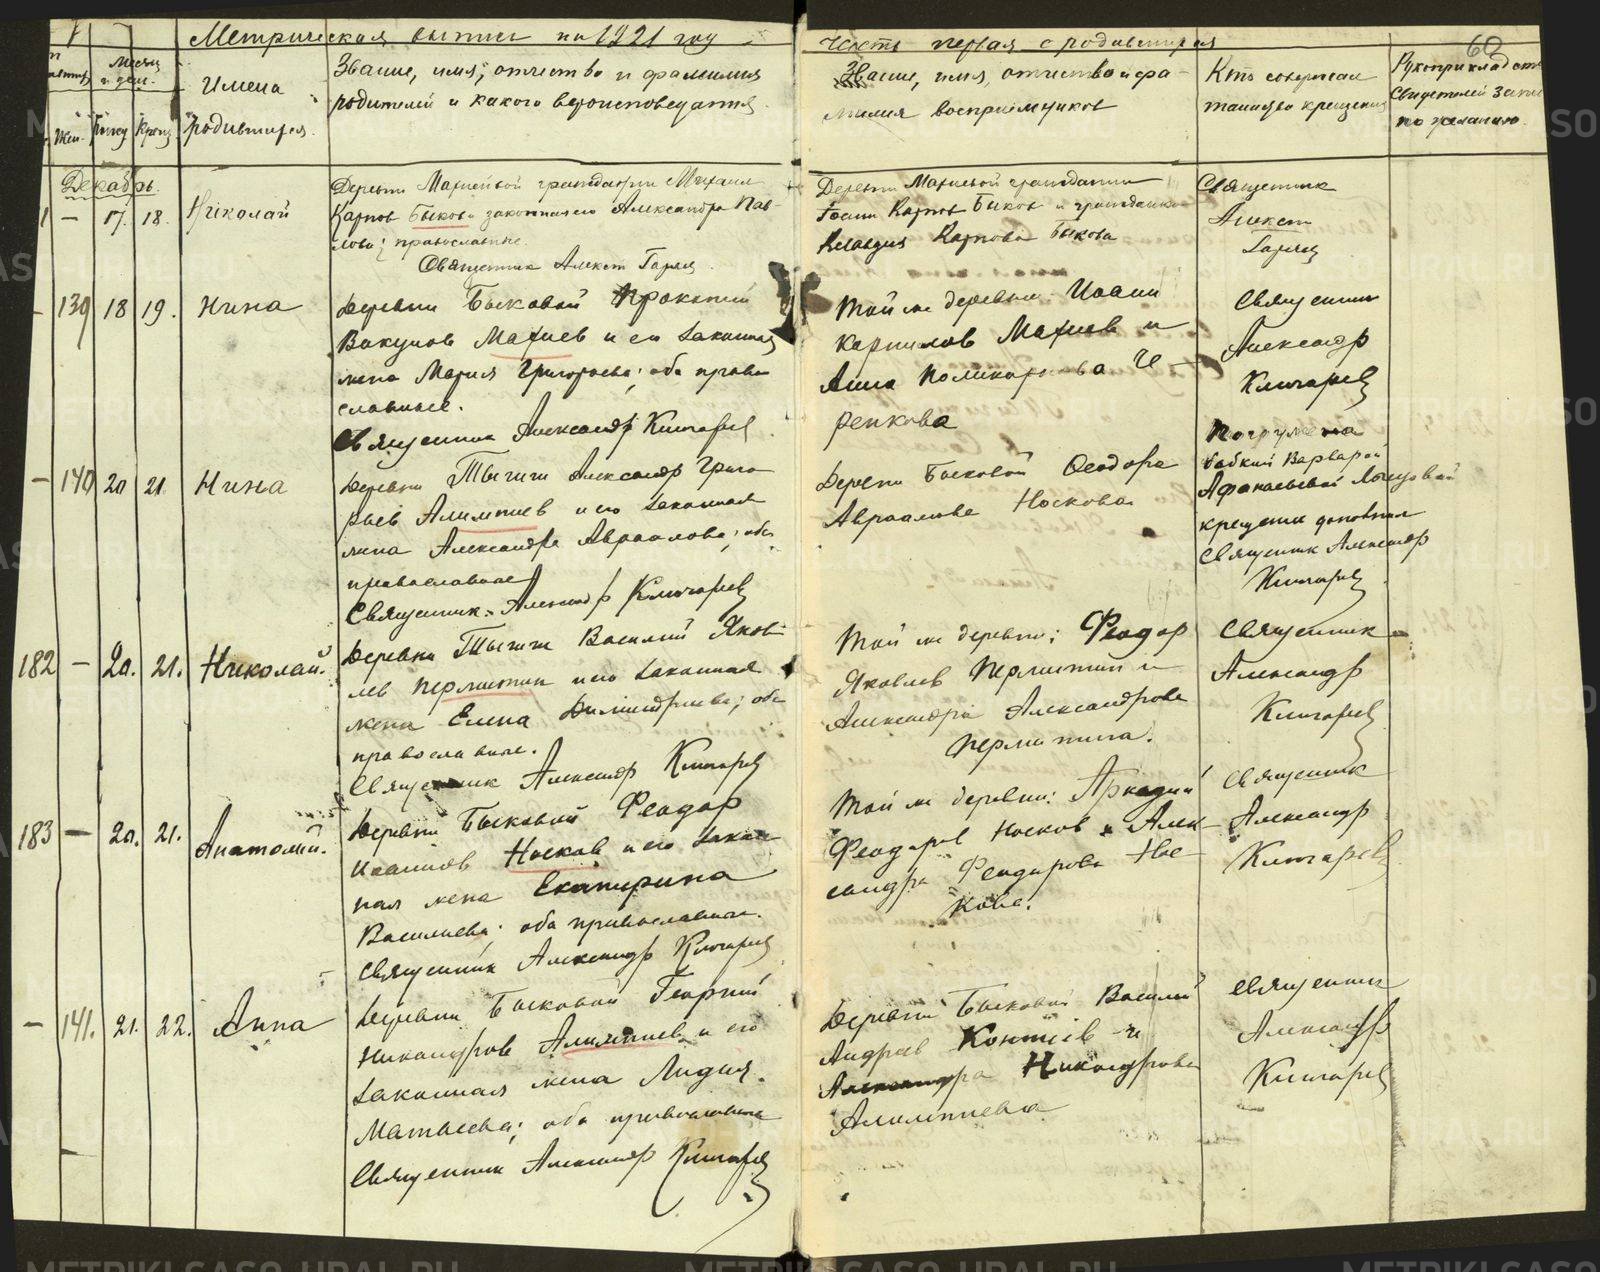 Метрическая выпись на 1921 год
Часть первая о родившихся
60
Месяц
и день.
Имена
родившихся.
Звание, имя, отчество и фамилия
родителей и какого вероисповедания
Звание, имя, отчество и фа-
милия восприемников
Кто совершал
таинство крещения
Рукоприкладство
свидетелей записи
по желанию.
Жен.
Декабрь.
— 17. 18. Николай
Деревни Махневой граждании Михаил
Карпов Быков и законная его Александра Пав-
лова; православные.
Священник Алексей
Деревни Махневой гражданин
Иоанн Карпов Быков и гражданка
Клавдия Карпова Быкова
Священник
Алексей
— 139 18 19. Нина
Деревни Быковой Прокопий
Вакулов Махнев и его законная
жена Мария Григорьева; оба право
славные.
Священник Александр Ключарев
Той же деревни: Иоанн
Карпилов Махнев и
Анна Поликарпова Че-
репкова
Священник
Александр
Ключарев
— 140 20 21. Нина
Деревни Тычиги Александр Григо
рьев Алимпиев и его законная
жена Александра Авраамова; оба
православные
Священник Александр Ключарев
Деревни Быковой Феодора
Авраамова Носкова
Погружена
бабкой Варварой
Афанасьевой
крещение дополнил
Священник Александр
Ключарев
182 — 20. 21. Николай.
Деревни Тычиги Василий Яков-
лев Пермитин и его законная
жена Елена Димитриева; оба
православные.
Священник Александр Ключарев
Той же деревни: Феодор
Яковлев Пермитин и
Александра Александрова
Пермитина.
Священник
Александр
Ключарев
183 — 20. 21. Анатолий.
Деревни Быковой Феодор
Иоаннов Носков и его закон-
ная жена Екатерина
Васильева; оба православные.
Священник Александр Ключарев
Той же деревни: Аркадий
Феодоров Носков и Алек-
сандра Феодорова Нос-
кова.
Священник
Александр
Ключарев
— 141. 21. 22. Анна
Деревни Быковой Георгий
Никандров Алимпиев и его
законная жена Лидия
Матвеева; оба православные
Священник Александр Ключарев
Деревни Быковой Василий
Андреев Коптев и
Александра Никандрова
Алимпиева
Священник
Александр
Ключарев
METRIKI.GASO-URAL.RU